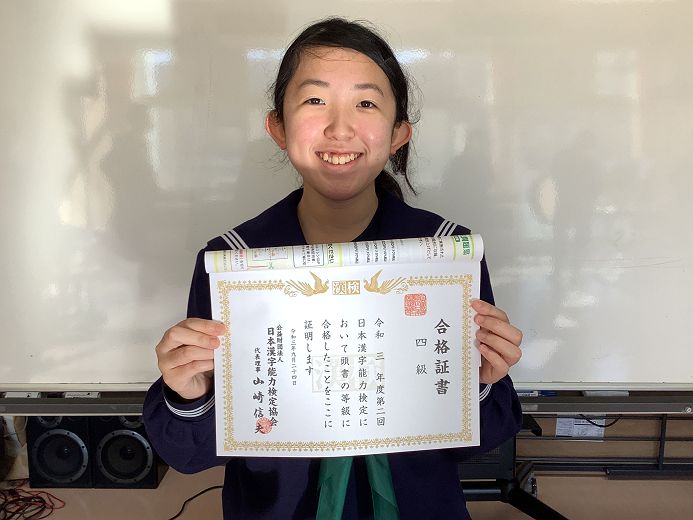 漢検
合格証書
四級
令和三年度第二回
日本漢字能力検定に
おいて頭書の等級に
合格したことをここに
証明します
令和三年九月二十四日
公益財団法人
日本漢字能力検定協会
代表理事 山崎信夫